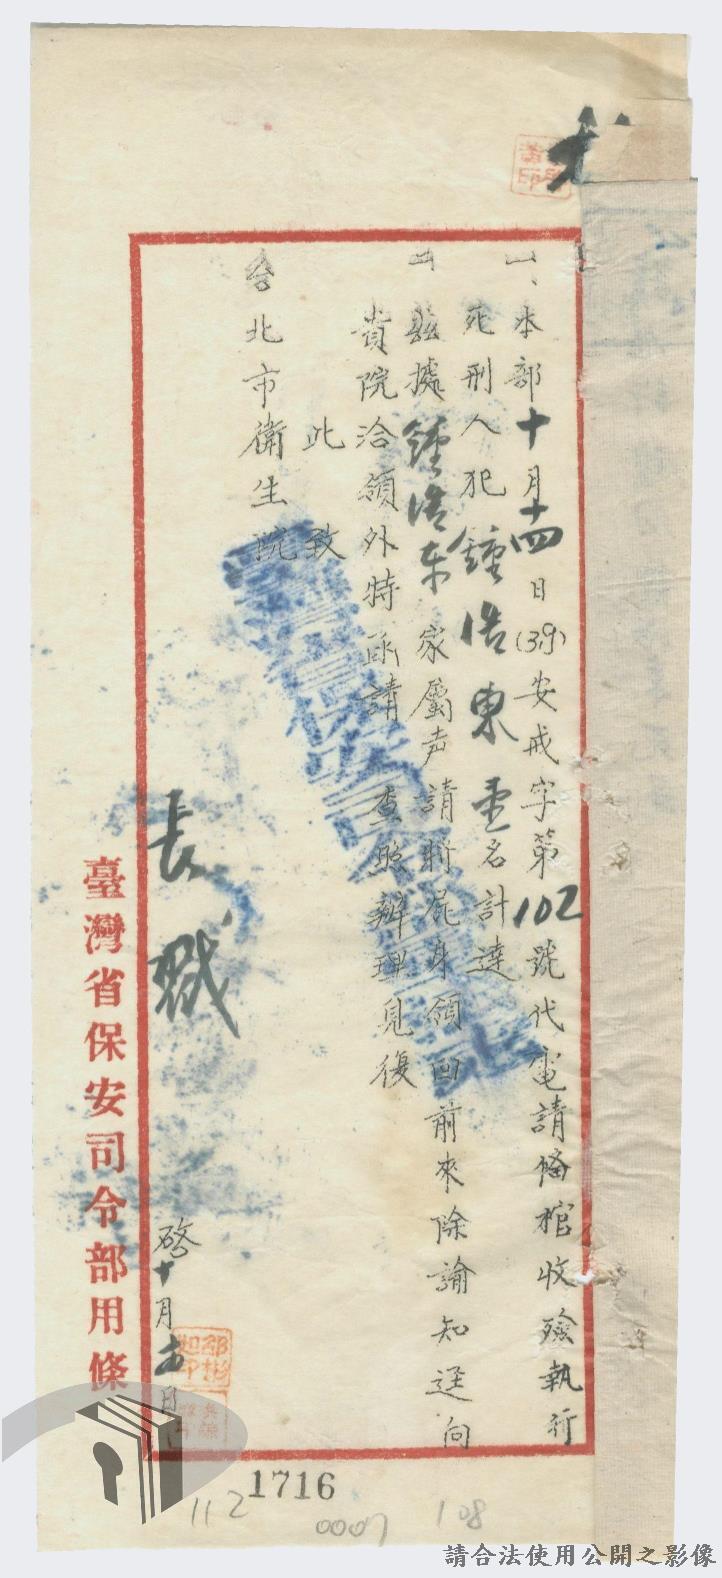 一、本部十月十四日(39)安戒字第102號代電請備棺收殮執行
死刑人犯鍾浩東壹名計達
二、茲據鍾浩东家屬声請將屍身領回前來除諭知逕向
貴院洽領外特函請 查照辦理見復
此致
台北市衛生院
長戳
啓十月 日
臺灣省保安司令部用條
1716
112
0007
108
請合法使用公開之影像